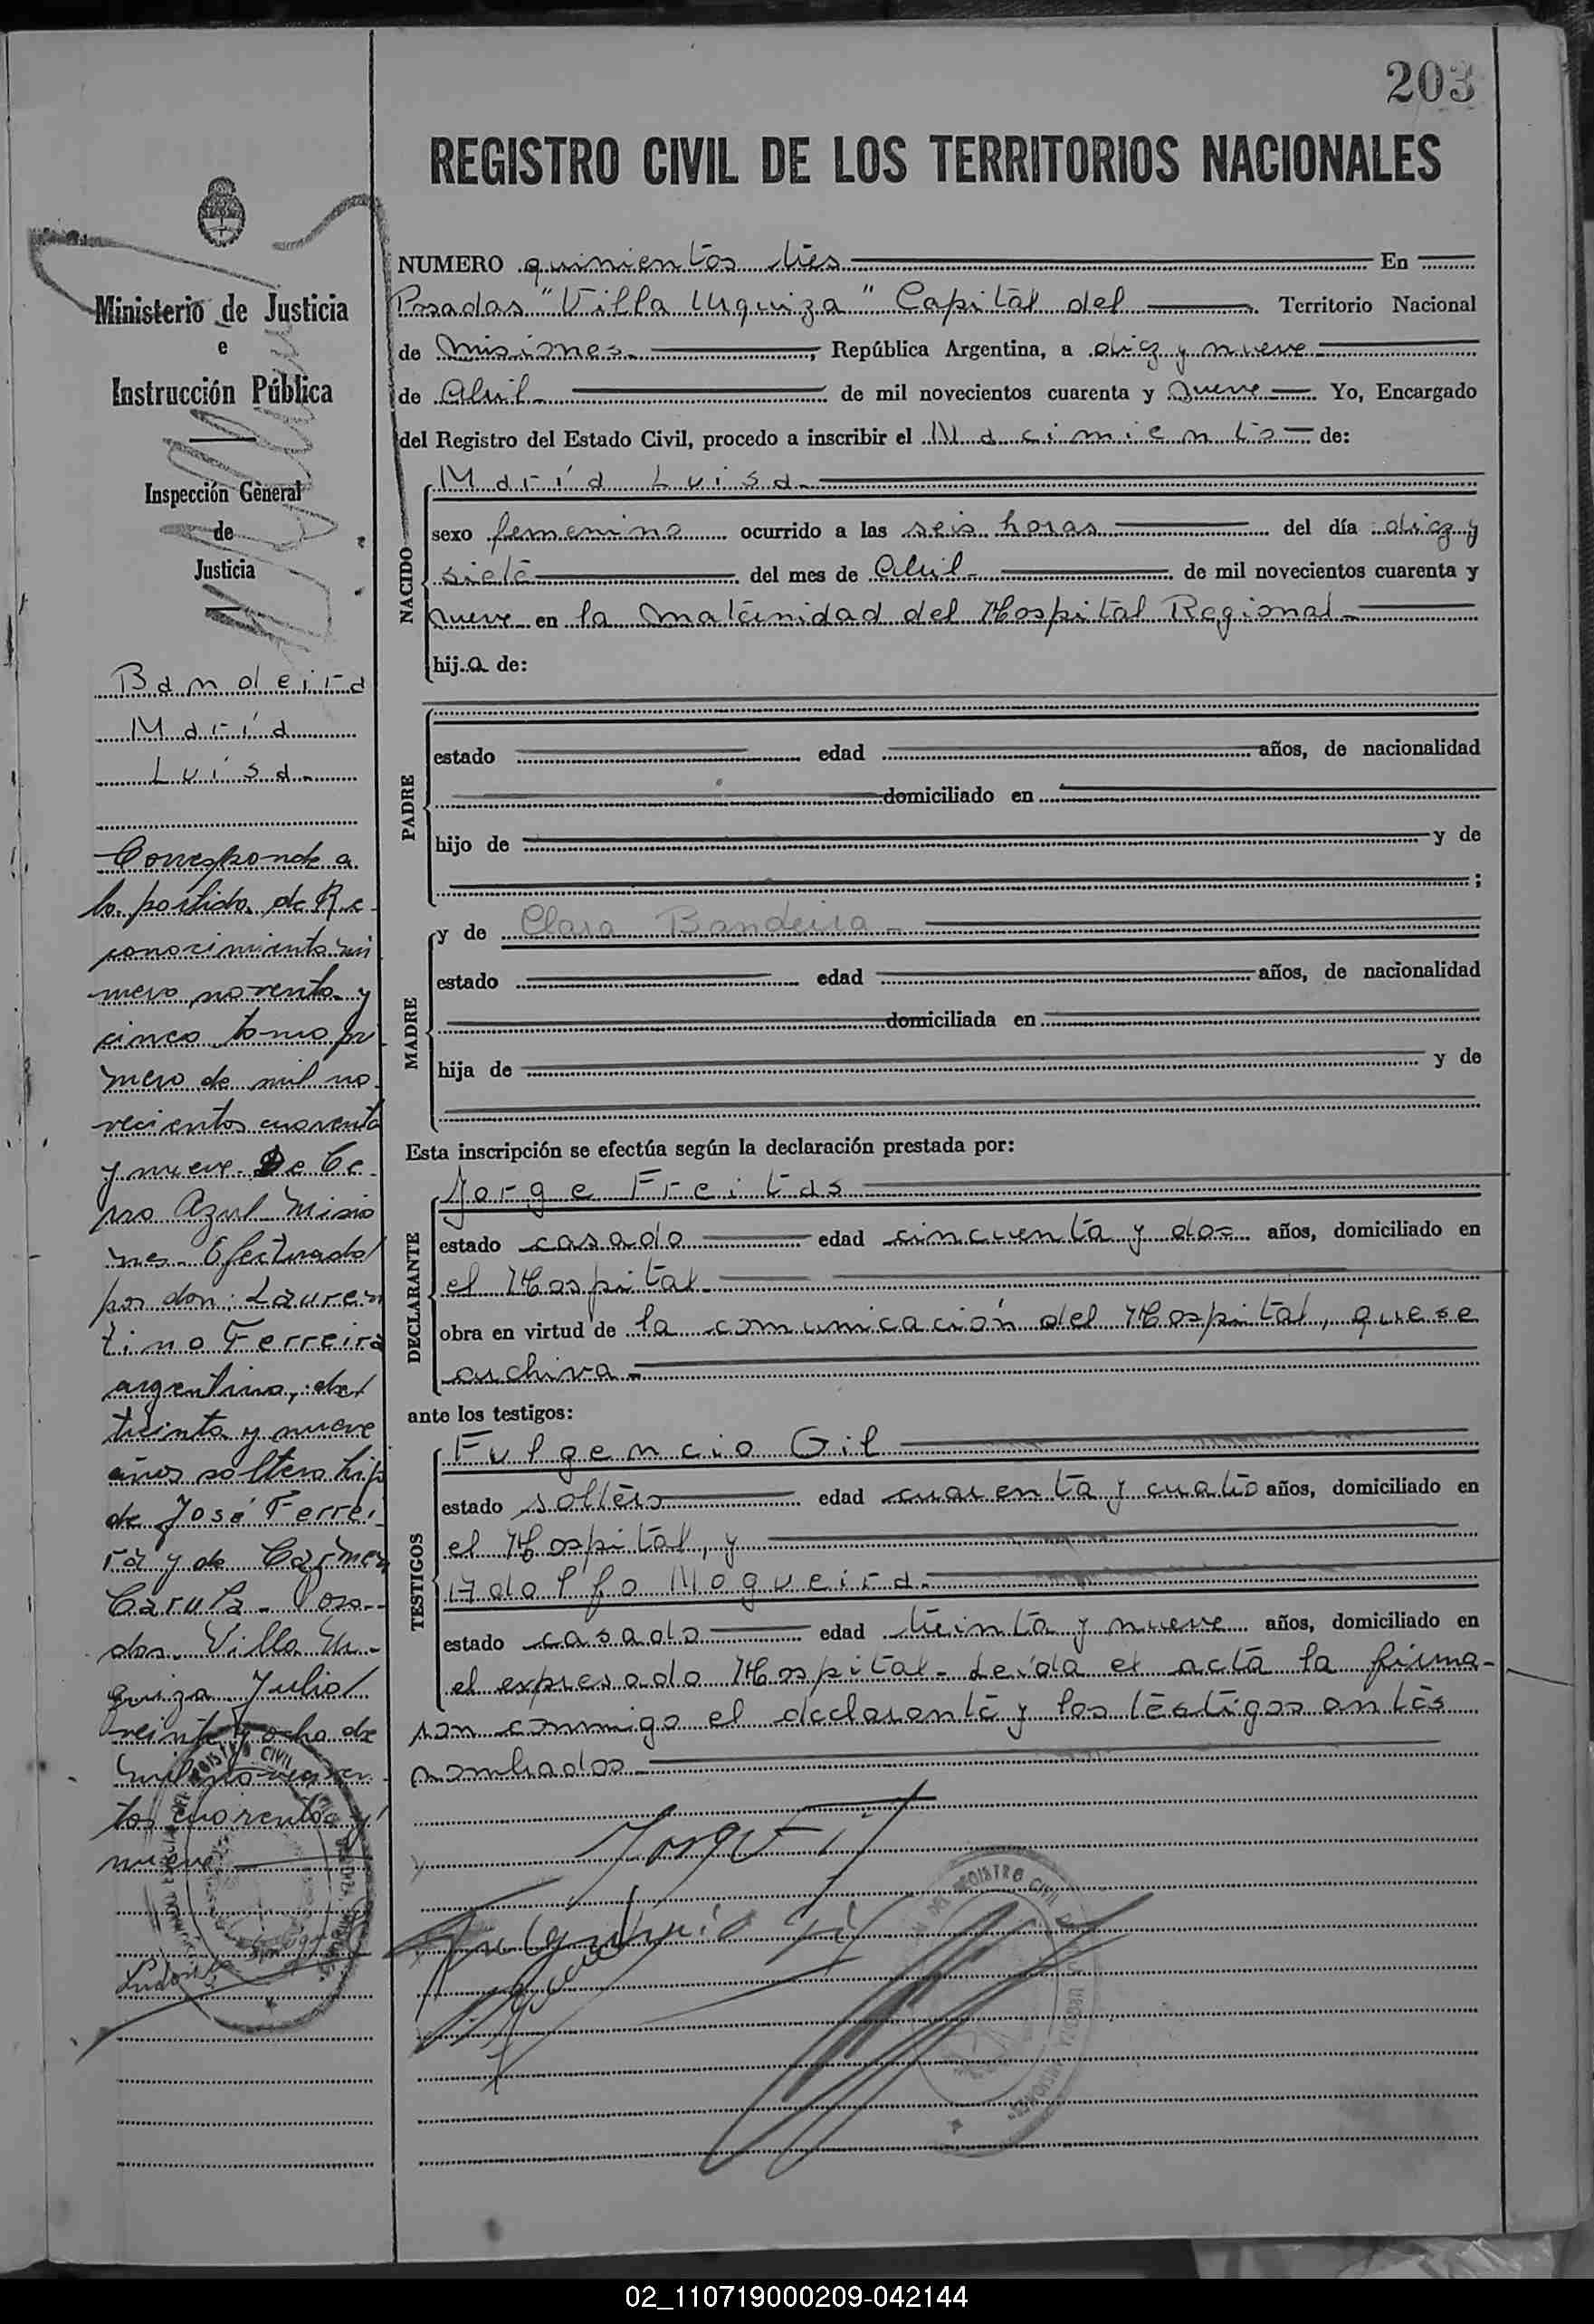 203
REGISTRO CIVIL DE LOS TERRITORIOS NACIONALES
Ministerio de Justicia
e
Instrucción Pública
Inspección General
de
Justicia
Bandeira
María
Luisa.
Corresponde a
la partida de Re
conocimiento nú
mero noventa y
cinco tomo pri
mero de mil no
vecientos cuarenta
y nueve. De Ce
rro Azul Misio
nes. Efectuado
por don: Lauren
tino Ferreira
argentino, de
treinta y nueve
años soltero hijo
de José Ferrei
ra y de Carmen
Posa
das. Villa Ur
quiza Julio
veinte y ocho de
mil novecien
tos cuarenta y
nueve
NUMERO quinientos tres En
Posadas "Villa Urquiza" Capital del Territorio Nacional
de Misiones. República Argentina, a diez y nueve
de Abril de mil novecientos cuarenta y nueve Yo, Encargado
del Registro del Estado Civil, procedo a inscribir el Nacimiento de:
NACIDO
María Luisa.
sexo femenino ocurrido a las seis horas del día diez y
siete del mes de Abril de mil novecientos cuarenta y
nueve en la maternidad del Hospital Regional
hija de:
PADRE
estado edad años, de nacionalidad
domiciliado en
hijo de y de
;
MADRE
y de Clara Bandeira
estado edad años, de nacionalidad
domiciliada en
hija de y de
Esta inscripción se efectúa según la declaración prestada por:
DECLARANTE
Jorge Freitas
estado casado edad cincuenta y dos años, domiciliado en
el Hospital.
obra en virtud de la comunicación del Hospital, que se
archiva.
ante los testigos:
TESTIGOS
Fulgencio Gil
estado soltero edad cuarenta y cuatro años, domiciliado en
el Hospital, y
Adolfo Nogueira.
estado casado edad treinta y nueve años, domiciliado en
el expresado Hospital. Leída el acta la firma-
ron conmigo el declarante y los testigos antes
nombrados
REGISTRO CIVIL
02_110719000209-042144